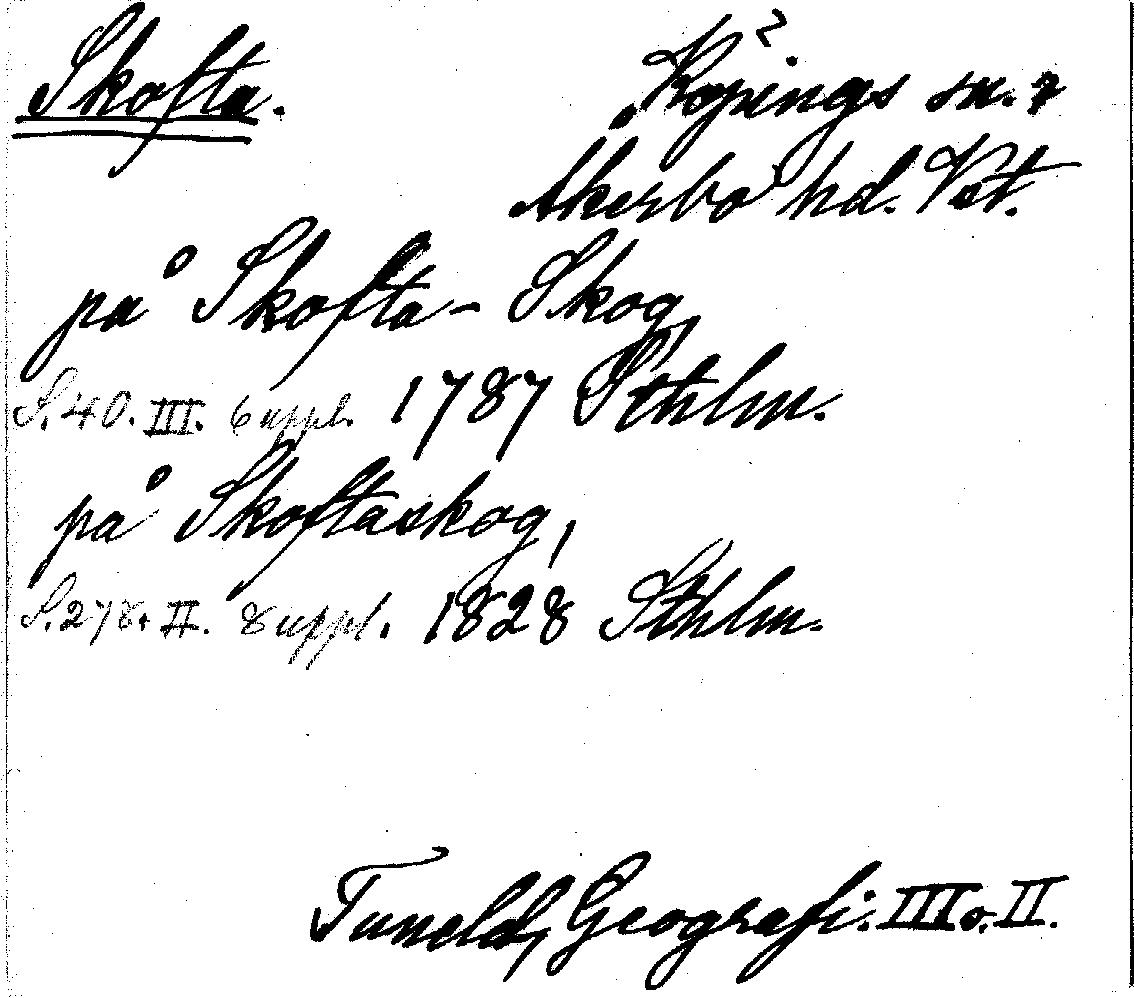 Skofta. Köpings sn. 7
Åkerbo hd. Vst.
på Skofta-Skog,
S. 40. III. 6 uppl. 1787 Sthlm.
på Skoftaskog,
S. 278. II. 8 uppl. 1828 Sthlm.
Tuneld, Geografi. III o. II.